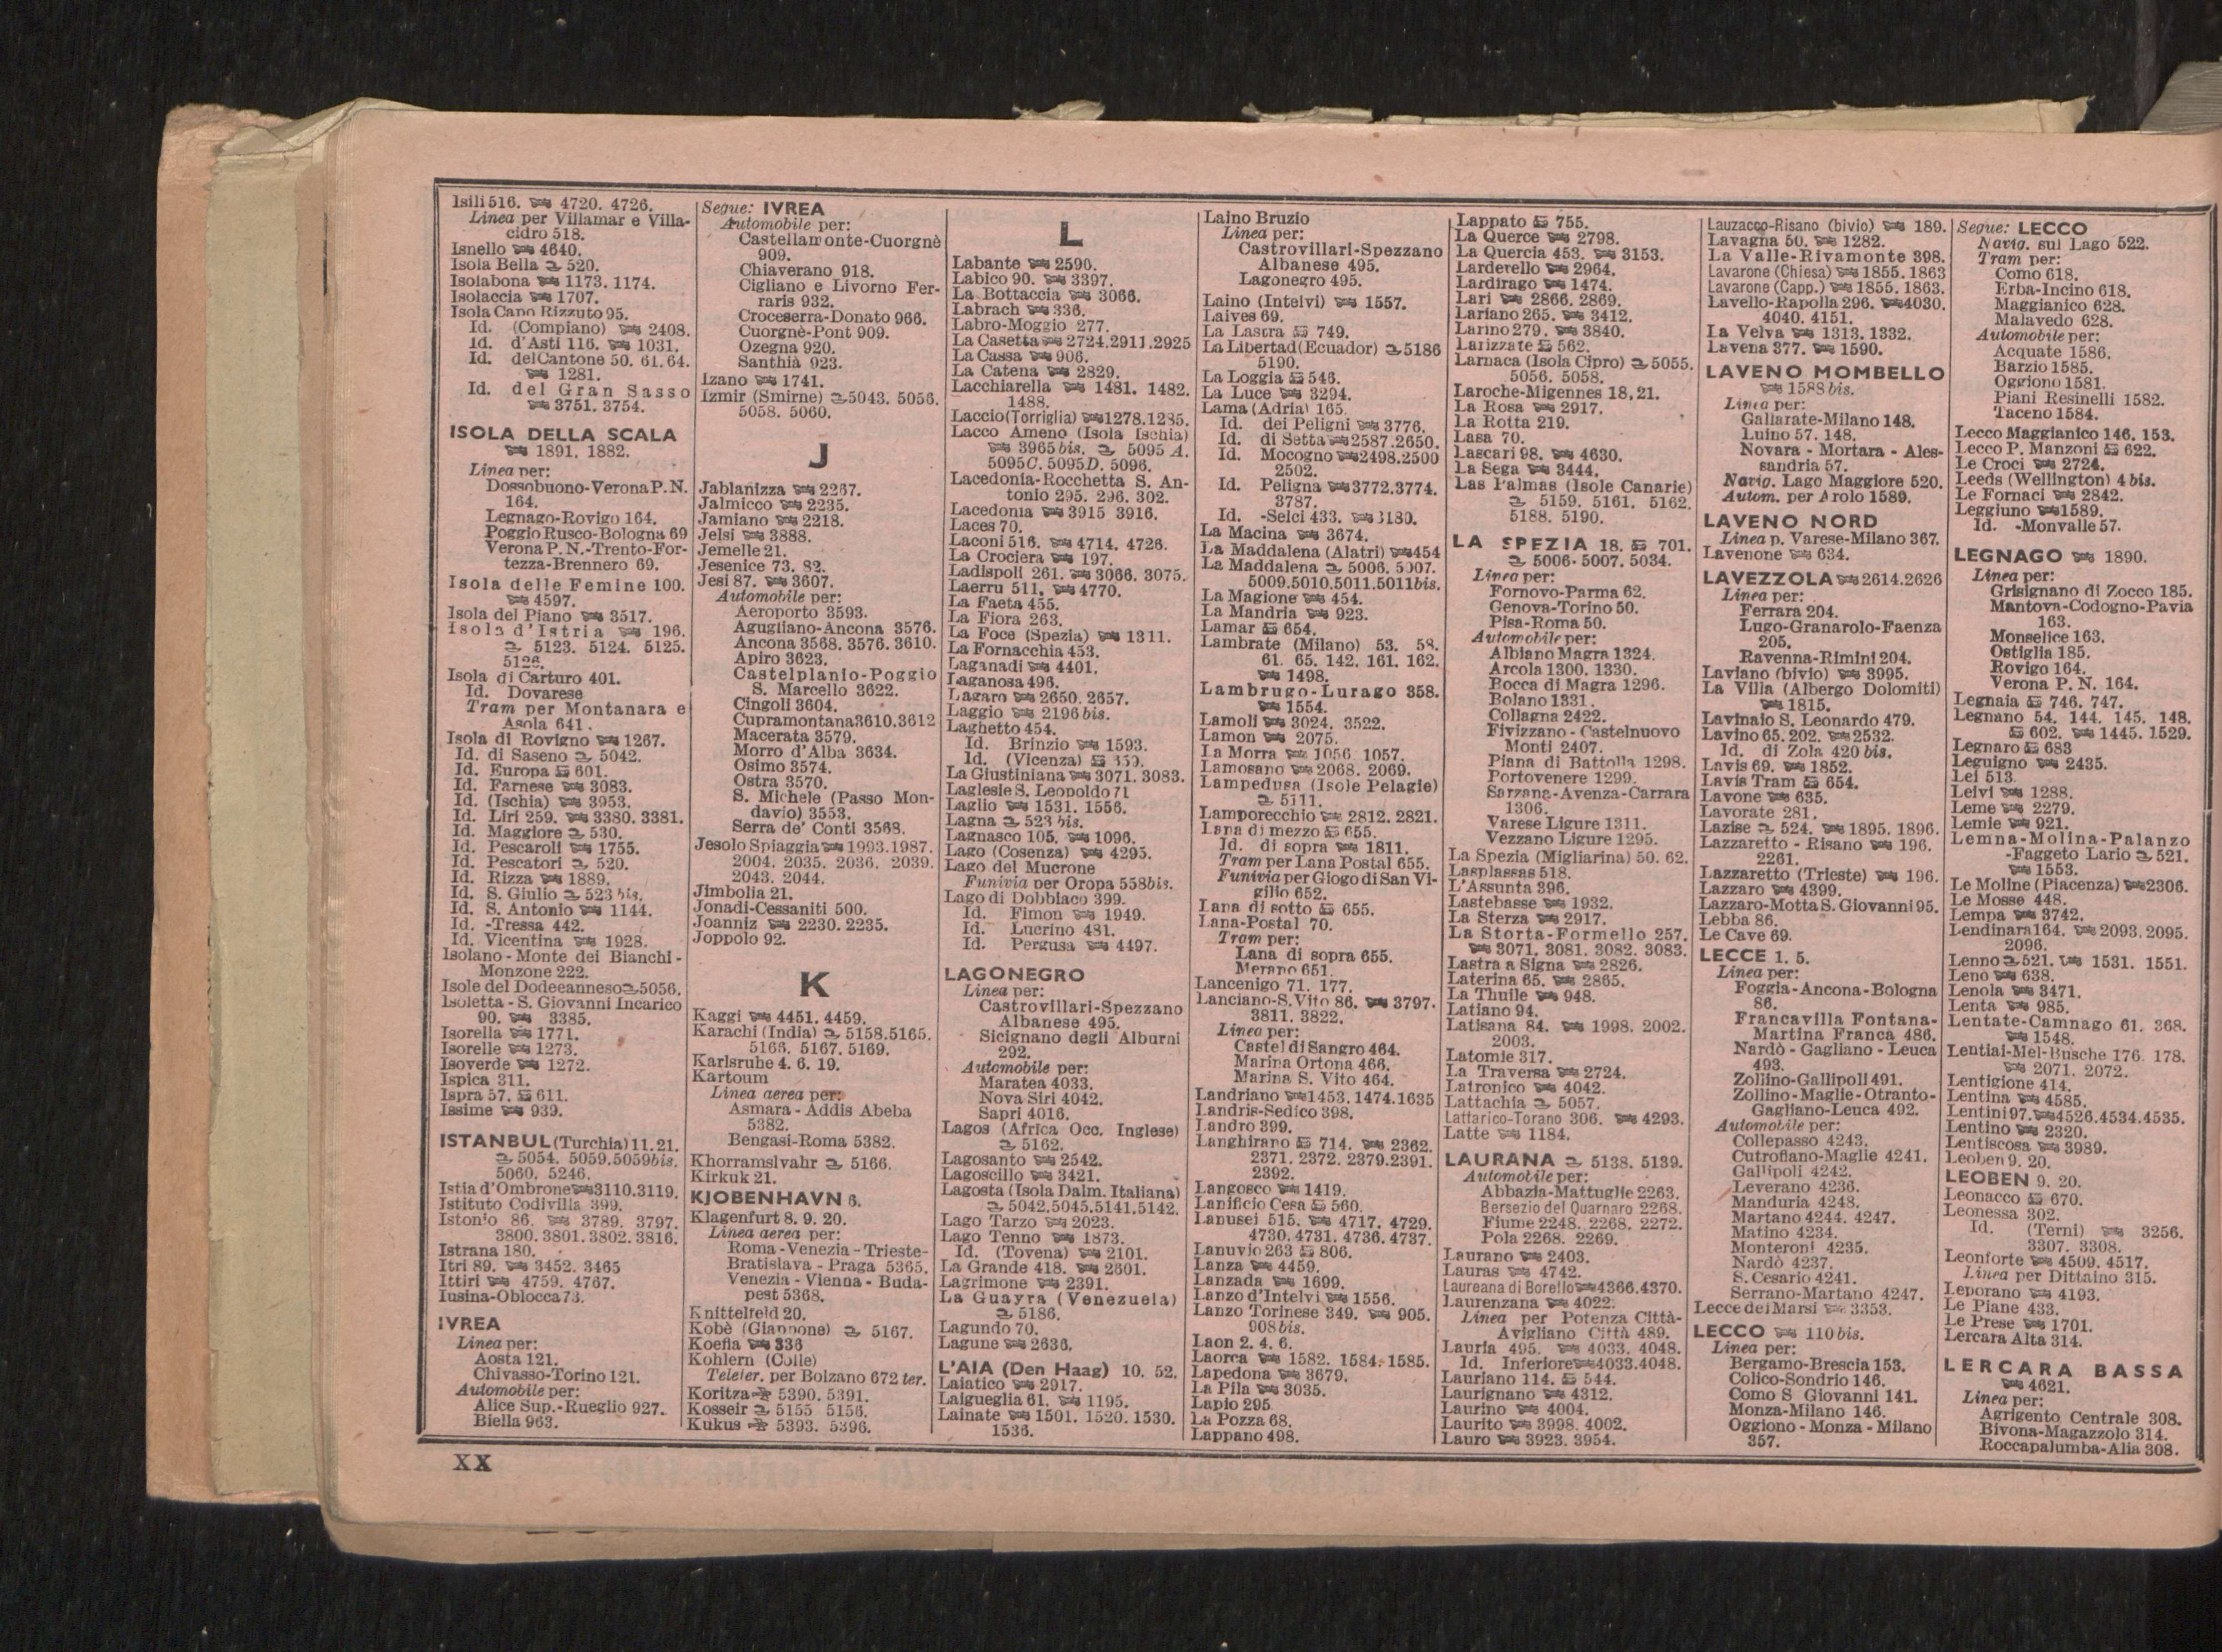 Isili 516. 4720. 4726.
Linea per Villamar e Villa-
cidro 518.
Isnello 4640.
Isola Bella 520.
Isolabona 1173. 1174.
Isolaccia 1707.
Isola Capo Rizzuto 95.
Id. (Compiano) 2408.
Id. d'Asti 116. 1031.
Id. del Cantone 50. 61. 64.
1281.
Id. del Gran Sasso
3751. 3754.
ISOLA DELLA SCALA
1891. 1882.
Linea per:
Dossobuono-Verona P. N.
164.
Legnago-Rovigo 164.
Poggio Rusco-Bologna 69
Verona P. N.-Trento-For-
tezza-Brennero 69.
Isola delle Femine 100.
4597.
Isola del Piano 3517.
Isola d'Istria 196.
5123. 5124. 5125.
5126.
Isola di Carturo 401.
Id. Dovarese
Tram per Montanara e
Asola 641.
Isola di Rovigno 1267.
Id. di Saseno 5042.
Id. Europa 601.
Id. Farnese 3083.
Id. (Ischia) 3953.
Id. Liri 259. 3380. 3381.
Id. Maggiore 530.
Id. Pescaroli 1755.
Id. Pescatori 520.
Id. Rizza 1889.
Id. S. Giulio 523 bis.
Id. S. Antonio 1144.
Id. -Tressa 442.
Id. Vicentina 1928.
Isolano - Monte dei Bianchi -
Monzone 222.
Isole del Dodecanneso 5056.
Isoletta - S. Giovanni Incarico
90. 3385.
Isorella 1771.
Isorelle 1273.
Isoverde 1272.
Ispica 311.
Ispra 57. 611.
Issime 939.
ISTANBUL (Turchia) 11. 21.
5054. 5059. 5059bis.
5060. 5246.
Istia d'Ombrone 3110. 3119.
Istituto Codivilla 399.
Istonio 86. 3789. 3797.
3800. 3801. 3802. 3816.
Istrana 180.
Itri 89. 3452. 3465
Ittiri 4759. 4767.
Iusina-Oblocca 73.
IVREA
Linea per:
Aosta 121.
Chivasso-Torino 121.
Automobile per:
Alice Sup.-Rueglio 927.
Biella 963.
Segue: IVREA
Automobile per:
Castellamonte-Cuorgnè
909.
Chiaverano 918.
Cigliano e Livorno Fer-
raris 932.
Croceserra-Donato 966.
Cuorgnè-Pont 909.
Ozegna 920.
Santhià 923.
Izano 1741.
Izmir (Smirne) 5043. 5056.
5058. 5060.
J
Jablanizza 2267.
Jalmicco 2235.
Jamiano 2218.
Jelsi 3888.
Jemelle 21.
Jesenice 73. 82.
Jesi 87. 3607.
Automobile per:
Aeroporto 3593.
Agugliano-Ancona 3576.
Ancona 3568. 3576. 3610.
Apiro 3623.
Castelplanio-Poggio
S. Marcello 3622.
Cingoli 3604.
Cupramontana 3610. 3612
Macerata 3579.
Morro d'Alba 3634.
Osimo 3574.
Ostra 3570.
S. Michele (Passo Mon-
davio) 3553.
Serra de' Conti 3568.
Jesolo Spiaggia 1993. 1987.
2004. 2035. 2036. 2039.
2043. 2044.
Jimbolia 21.
Jonadi-Cessaniti 500.
Joanniz 2230. 2235.
Joppolo 92.
K
Kaggi 4451. 4459.
Karachi (India) 5158. 5165.
5166. 5167. 5169.
Karlsruhe 4. 6. 19.
Kartoum
Linea aerea per:
Asmara - Addis Abeba
5382.
Bengasi-Roma 5382.
Khorramslvahr 5166.
Kirkuk 21.
KJOBENHAVN 6.
Klagenfurt 8. 9. 20.
Linea aerea per:
Roma - Venezia - Trieste-
Bratislava - Praga 5365.
Venezia - Vienna - Buda-
pest 5368.
Knittelfeld 20.
Kobè (Giappone) 5167.
Koefla 336
Kohlern (Colle)
Telefer. per Bolzano 672 ter.
Koritza 5390. 5391.
Kosseir 5155 5156.
Kukus 5393. 5396.
L
Labante 2590.
Labico 90. 3397.
La Bottaccia 3066.
Labrach 336.
Labro-Moggio 277.
La Casetta 2724. 2911. 2925
La Cassa 906.
La Catena 2829.
Lacchiarella 1481. 1482.
1488.
Laccio (Torriglia) 1278. 1285.
Lacco Ameno (Isola Ischia)
3965 bis. 5095 A.
5095C. 5095D. 5096.
Lacedonia-Rocchetta S. An-
tonio 295. 296. 302.
Lacedonia 3915 3916.
Laces 70.
Laconi 516. 4714. 4726.
La Crociera 197.
Ladispoli 261. 3066. 3075.
Laerru 511. 4770.
La Faeta 455.
La Fiora 263.
La Foce (Spezia) 1311.
La Fornacchia 453.
Laganadi 4401.
Laganosa 496.
Lagaro 2650. 2657.
Laggio 2196 bis.
Laghetto 454.
Id. Brinzio 1593.
Id. (Vicenza) 359.
La Giustiniana 3071. 3083.
Laglesie S. Leopoldo 71
Laglio 1531. 1556.
Lagna 523 bis.
Lagnasco 105. 1096.
Lago (Cosenza) 4295.
Lago del Mucrone
Funivia per Oropa 558bis.
Lago di Dobbiaco 399.
Id. Fimon 1949.
Id. Lucrino 481.
Id. Pergusa 4497.
LAGONEGRO
Linea per:
Castrovillari-Spezzano
Albanese 495.
Sicignano degli Alburni
292.
Automobile per:
Maratea 4033.
Nova Siri 4042.
Sapri 4016.
Lagos (Africa Occ. Inglese)
5162.
Lagosanto 2542.
Lagoscillo 3421.
Lagosta (Isola Dalm. Italiana)
5042. 5045. 5141. 5142.
Lago Tarzo 2023.
Lago Tenno 1873.
Id. (Tovena) 2101.
La Grande 418. 2601.
Lagrimone 2391.
La Guayra (Venezuela)
5186.
Lagundo 70.
Lagune 2636.
L'AIA (Den Haag) 10. 52.
Laiatico 2917.
Laigueglia 61. 1195.
Lainate 1501. 1520. 1530.
1536.
Laino Bruzio
Linea per:
Castrovillari-Spezzano
Albanese 495.
Lagonegro 495.
Laino (Intelvi) 1557.
Laives 69.
La Lastra 749.
La Libertad (Ecuador) 5186
5190.
La Loggia 546.
La Luce 3294.
Lama (Adria) 165.
Id. dei Peligni 3776.
Id. di Setta 2587. 2650.
Id. Mocogno 2498. 2500
2502.
Id. Peligna 3772. 3774.
3787.
Id. -Selci 433. 3180.
La Macina 3674.
La Maddalena (Alatri) 454
La Maddalena 5006. 5007.
5009. 5010. 5011. 5011bis.
La Magione 454.
La Mandria 923.
Lamar 654.
Lambrate (Milano) 53. 58.
61. 65. 142. 161. 162.
1498.
Lambrugo-Lurago 358.
1554.
Lamoli 3024. 3522.
Lamon 2075.
La Morra 1056 1057.
Lamosano 2068. 2069.
Lampedusa (Isole Pelagie)
5111.
Lamporecchio 2812. 2821.
Lana di mezzo 655.
Id. di sopra 1811.
Tram per Lana Postal 655.
Funivia per Giogo di San Vi-
gilio 652.
Lana di sotto 655.
Lana-Postal 70.
Tram per:
Lana di sopra 655.
Merano 651.
Lancenigo 71. 177.
Lanciano-S. Vito 86. 3797.
3811. 3822.
Linea per:
Castel di Sangro 464.
Marina Ortona 466.
Marina S. Vito 464.
Landriano 1453. 1474. 1635
Landris-Sedico 398.
Landro 399.
Langhirano 714. 2362.
2371. 2372. 2379. 2391.
2392.
Langosco 1419.
Lanificio Cesa 560.
Lanusei 515. 4717. 4729.
4730. 4731. 4736. 4737.
Lanuvio 263 806.
Lanza 4459.
Lanzada 1699.
Lanzo d'Intelvi 1556.
Lanzo Torinese 349. 905.
908bis.
Laon 2. 4. 6.
Laorca 1582. 1584. 1585.
Lapedona 3679.
La Pila 3035.
Lapio 295
La Pozza 68.
Lappano 498.
Lappato 755.
La Querce 2798.
La Quercia 453. 3153.
Larderello 2964.
Lardirago 1474.
Lari 2866. 2869.
Lariano 265. 3412.
Larino 279. 3840.
Larizzate 562.
Larnaca (Isola Cipro) 5055.
5056. 5058.
Laroche-Migennes 18. 21.
La Rosa 2917.
La Rotta 219.
Lasa 70.
Lascari 98. 4630.
La Sega 3444.
Las Palmas (Isole Canarie)
5159. 5161. 5162.
5188. 5190.
LA SPEZIA 18. 701.
5006. 5007. 5034.
Linea per:
Fornovo-Parma 62.
Genova-Torino 50.
Pisa-Roma 50.
Automobile per:
Albiano Magra 1324.
Arcola 1300. 1330.
Bocca di Magra 1296.
Bolano 1331.
Collagna 2422.
Fivizzano - Castelnuovo
Monti 2407.
Piana di Battolla 1298.
Portovenere 1299.
Sarzana-Avenza-Carrara
1306.
Varese Ligure 1311.
Vezzano Ligure 1295.
La Spezia (Migliarina) 50. 62.
Lasplassas 518.
L'Assunta 396.
Lastebasse 1932.
La Sterza 2917.
La Storta-Formello 257.
3071. 3081. 3082. 3083.
Lastra a Signa 2826.
Laterina 65. 2865.
La Thuile 948.
Latiano 94.
Latisana 84. 1998. 2002.
2003.
Latomie 317.
La Traversa 2724.
Latronico 4042.
Lattachia 5057.
Lattarico-Torano 306. 4293.
Latte 1184.
LAURANA 5138. 5139.
Automobile per:
Abbazia-Mattuglie 2263.
Bersezio del Quarnaro 2268.
Fiume 2248. 2268. 2272.
Pola 2268. 2269.
Laurano 2403.
Lauras 4742.
Laureana di Borello 4366. 4370.
Laurenzana 4022.
Linea per Potenza Città-
Avigliano Città 489.
Lauria 495. 4033. 4048.
Id. Inferiore 4033. 4048.
Lauriano 114. 544.
Laurignano 4312.
Laurino 4004.
Laurito 3998. 4002.
Lauro 3923. 3954.
Lauzacco-Risano (bivio) 189.
Lavagna 50. 1282.
La Valle-Rivamonte 398.
Lavarone (Chiesa) 1855. 1863
Lavarone (Capp.) 1855. 1863.
Lavello-Rapolla 296. 4030.
4040. 4151.
La Velva 1313. 1332.
Lavena 377. 1590.
LAVENO MOMBELLO
1588 bis.
Linea per:
Gallarate-Milano 148.
Luino 57. 148.
Novara - Mortara - Ales-
sandria 57.
Navig. Lago Maggiore 520.
Autom. per Arolo 1589.
LAVENO NORD
Linea p. Varese-Milano 367.
Lavenone 634.
LAVEZZOLA 2614. 2626
Linea per:
Ferrara 204.
Lugo-Granarolo-Faenza
205.
Ravenna-Rimini 204.
Laviano (bivio) 3995.
La Villa (Albergo Dolomiti)
1815.
Lavinaio S. Leonardo 479.
Lavino 65. 202. 2532.
Id. di Zola 420 bis.
Lavis 69. 1852.
Lavis Tram 654.
Lavone 635.
Lavorate 281.
Lazise 524. 1895. 1896.
Lazzaretto - Risano 196.
2261.
Lazzaretto (Trieste) 196.
Lazzaro 4399.
Lazzaro-Motta S. Giovanni 95.
Lebba 86.
Le Cave 69.
LECCE 1. 5.
Linea per:
Foggia-Ancona-Bologna
86.
Francavilla Fontana-
Martina Franca 486.
Nardò - Gagliano - Leuca
493.
Zollino-Gallipoli 491.
Zollino - Maglie - Otranto-
Gagliano-Leuca 492.
Automobile per:
Collepasso 4243.
Cutrofiano-Maglie 4241.
Gallipoli 4242.
Leverano 4236.
Manduria 4248.
Martano 4244. 4247.
Matino 4234.
Monteroni 4235.
Nardò 4237.
S. Cesario 4241.
Serrano-Martano 4247.
Lecce dei Marsi 3353.
LECCO 110 bis.
Linea per:
Bergamo-Brescia 153.
Colico-Sondrio 146.
Como S Giovanni 141.
Monza-Milano 146.
Oggiono - Monza - Milano
357.
Segue: LECCO
Navig. sul Lago 522.
Tram per:
Como 618.
Erba-Incino 618.
Maggianico 628.
Malavedo 628.
Automobile per:
Acquate 1586.
Barzio 1585.
Oggiono 1581.
Piani Resinelli 1582.
Taceno 1584.
Lecco Maggianico 146. 153.
Lecco P. Manzoni 622.
Le Croci 2724.
Leeds (Wellington) 4 bis.
Le Fornaci 2842.
Leggiuno 1589.
Id. -Monvalle 57.
LEGNAGO 1890.
Linea per:
Grisignano di Zocco 185.
Mantova-Codogno-Pavia
163.
Monselice 163.
Ostiglia 185.
Rovigo 164.
Verona P. N. 164.
Legnaia 746. 747.
Legnano 54. 144. 145. 148.
602. 1445. 1529.
Legnaro 683
Leguigno 2435.
Lei 513
Leivi 1288.
Leme 2279.
Lemie 921.
Lemna-Molina-Palanzo
-Faggeto Lario 521.
1553.
Le Moline (Piacenza) 2306.
Le Mosse 448.
Lempa 3742.
Lendinara 164. 2093. 2095.
2096.
Lenno 521. 1531. 1551.
Leno 638.
Lenola 3471.
Lenta 985.
Lentate-Camnago 61. 368.
1548.
Lentiai-Mel-Busche 176. 178.
2071. 2072.
Lentigione 414.
Lentina 4585.
Lentini 97. 4526. 4534. 4535.
Lentino 2320.
Lentiscosa 3989.
Leoben 9. 20.
LEOBEN 9. 20.
Leonacco 670.
Leonessa 302.
Id. (Terni) 3256.
3307. 3308.
Leonforte 4509. 4517.
Linea per Dittaino 315.
Leporano 4193.
Le Piane 433.
Le Prese 1701.
Lercara Alta 314.
LERCARA BASSA
4621.
Linea per:
Agrigento Centrale 308.
Bivona-Magazzolo 314.
Roccapalumba-Alia 308.
XX